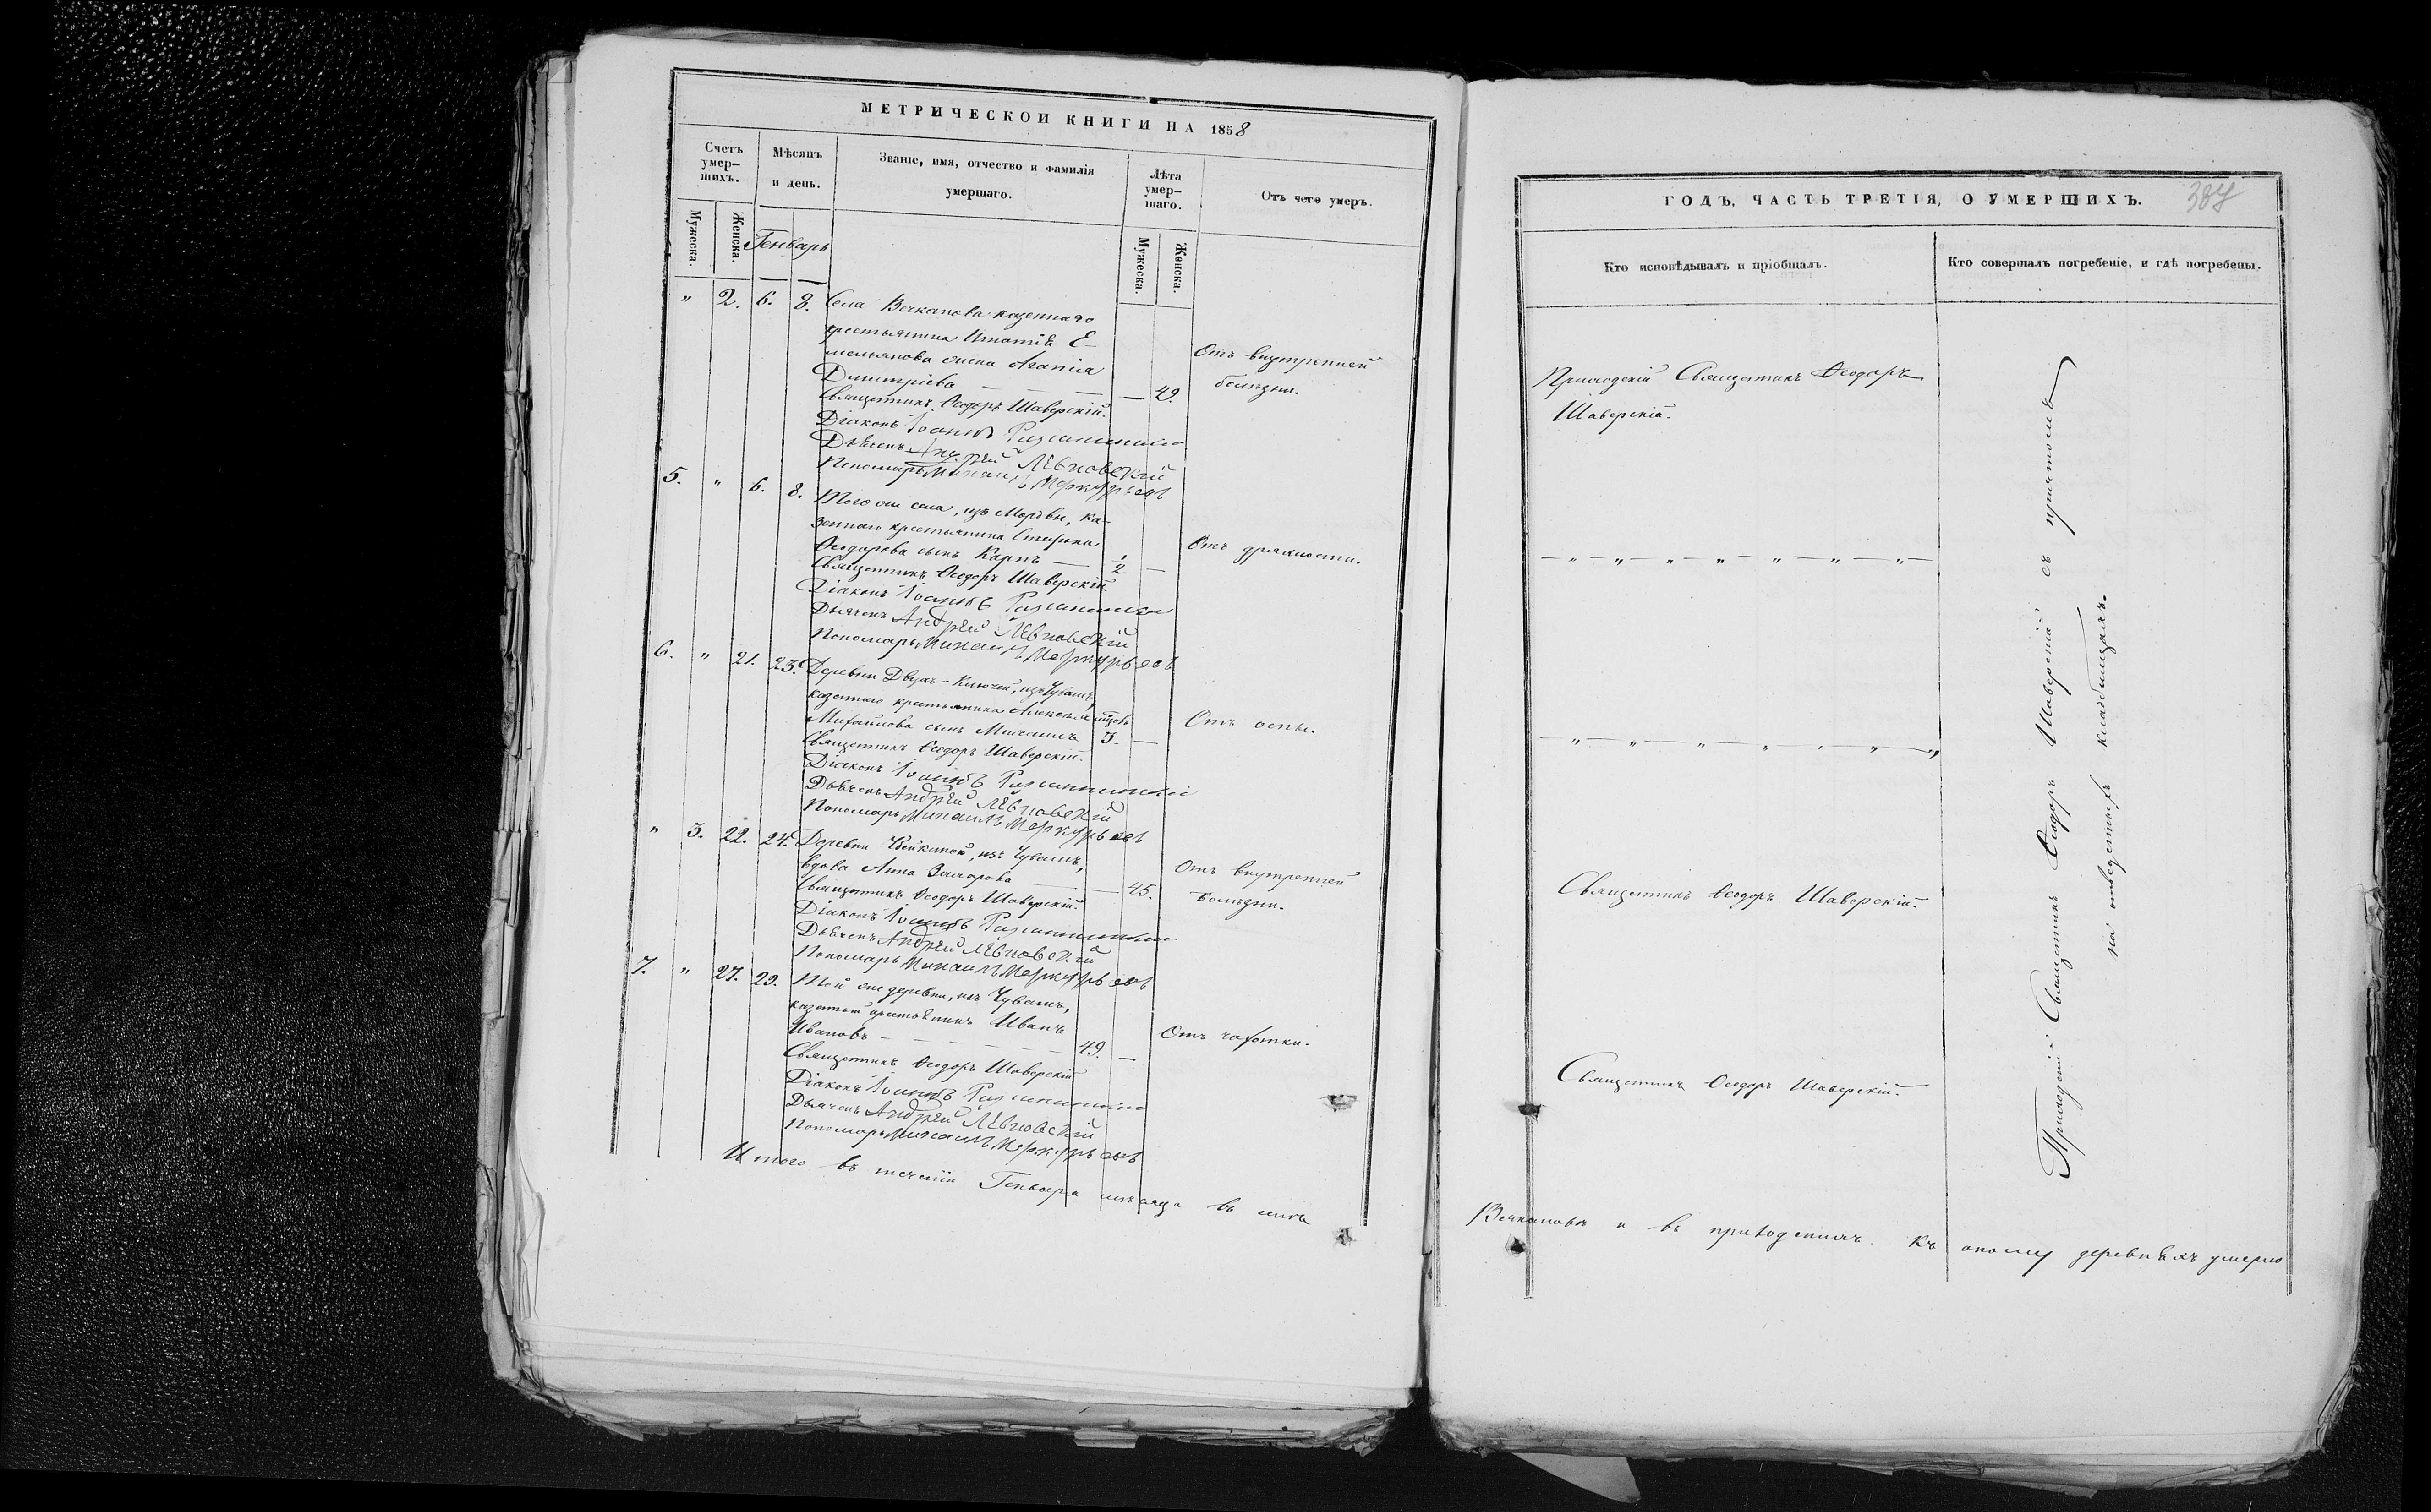 МЕТРИЧЕСКОЙ КНИГИ НА 1858
Счетъ умер-шихъ.
Мѣсяцъ и день.
Званіе, имя, отчество и фамилія умершаго.
Лѣта умер-шаго.
Отъ чего умеръ.
Мужеска.
Женска.
Генварь
Мужеска.
Женска.
" 2. 6. 8. Села Вечканова казеннаго
крестьянина Игнатія Е-
мельянова жена Агапія
Димитріева — — 49.
Отъ внутренней
болѣзни.
Священникъ Ѳеодоръ Шаверскій.
Діаконъ Іоаннъ
Дьячекъ Андрей
Пономарь Михаилъ Меркурьевъ
5. " 6. 8. Того же села, изъ Мордвы, ка-
зеннаго крестьянина Спирина
Ѳеодорова сынъ Карпъ — 1/2 —
Отъ дряхлости.
Священникъ Ѳеодоръ Шаверскій.
Діаконъ Іоаннъ
Дьячекъ Андрей
Пономарь Михаилъ Меркурьевъ
6. " 21. 23. Деревни Двухъ-Ключей, изъ Чувашъ,
казеннаго крестьянина Алексѣя
Михайлова сынъ 3. —
Отъ оспы.
Священникъ Ѳеодоръ Шаверскій.
Діаконъ Іоаннъ
Дьячекъ Андрей
Пономарь Михаилъ Меркурьевъ
" 3. 22. 24. Деревни изъ Чувашъ,
вдова Анна Захарова — — 45.
Отъ внутренней
болѣзни.
Священникъ Ѳеодоръ Шаверскій.
Діаконъ Іоаннъ
Дьячекъ Андрей
Пономарь Михаилъ Меркурьевъ
7. " 27. 29. Той же деревни, изъ Чувашъ,
казенный крестьянинъ Иванъ
Ивановъ — — — — — 49. —
Отъ чахотки.
Священникъ Ѳеодоръ Шаверскій
Діаконъ Іоаннъ
Дьячекъ Андрей
Пономарь Михаилъ Меркурьевъ
Итого въ теченіи Генваря мѣсяца въ селѣ
ГОДЪ, ЧАСТЬ ТРЕТІЯ, О УМЕРШИХЪ.
387
Кто исповѣдывалъ и пріобщалъ.
Кто совершалъ погребеніе, и гдѣ погребены.
Приходскій Священникъ Ѳеодоръ
Шаверскій.
— " — " — " — " — " — " — " —
— " — " — " — " — " — " — "
Священникъ Ѳеодоръ Шаверскій.
Священникъ Ѳеодоръ Шаверскій.
Приходскій Священникъ Ѳеодоръ Шаверскій съ причтомъ
на отведенныхъ кладбищахъ.
Вечкановѣ и въ приходскихъ къ оному деревняхъ умерло